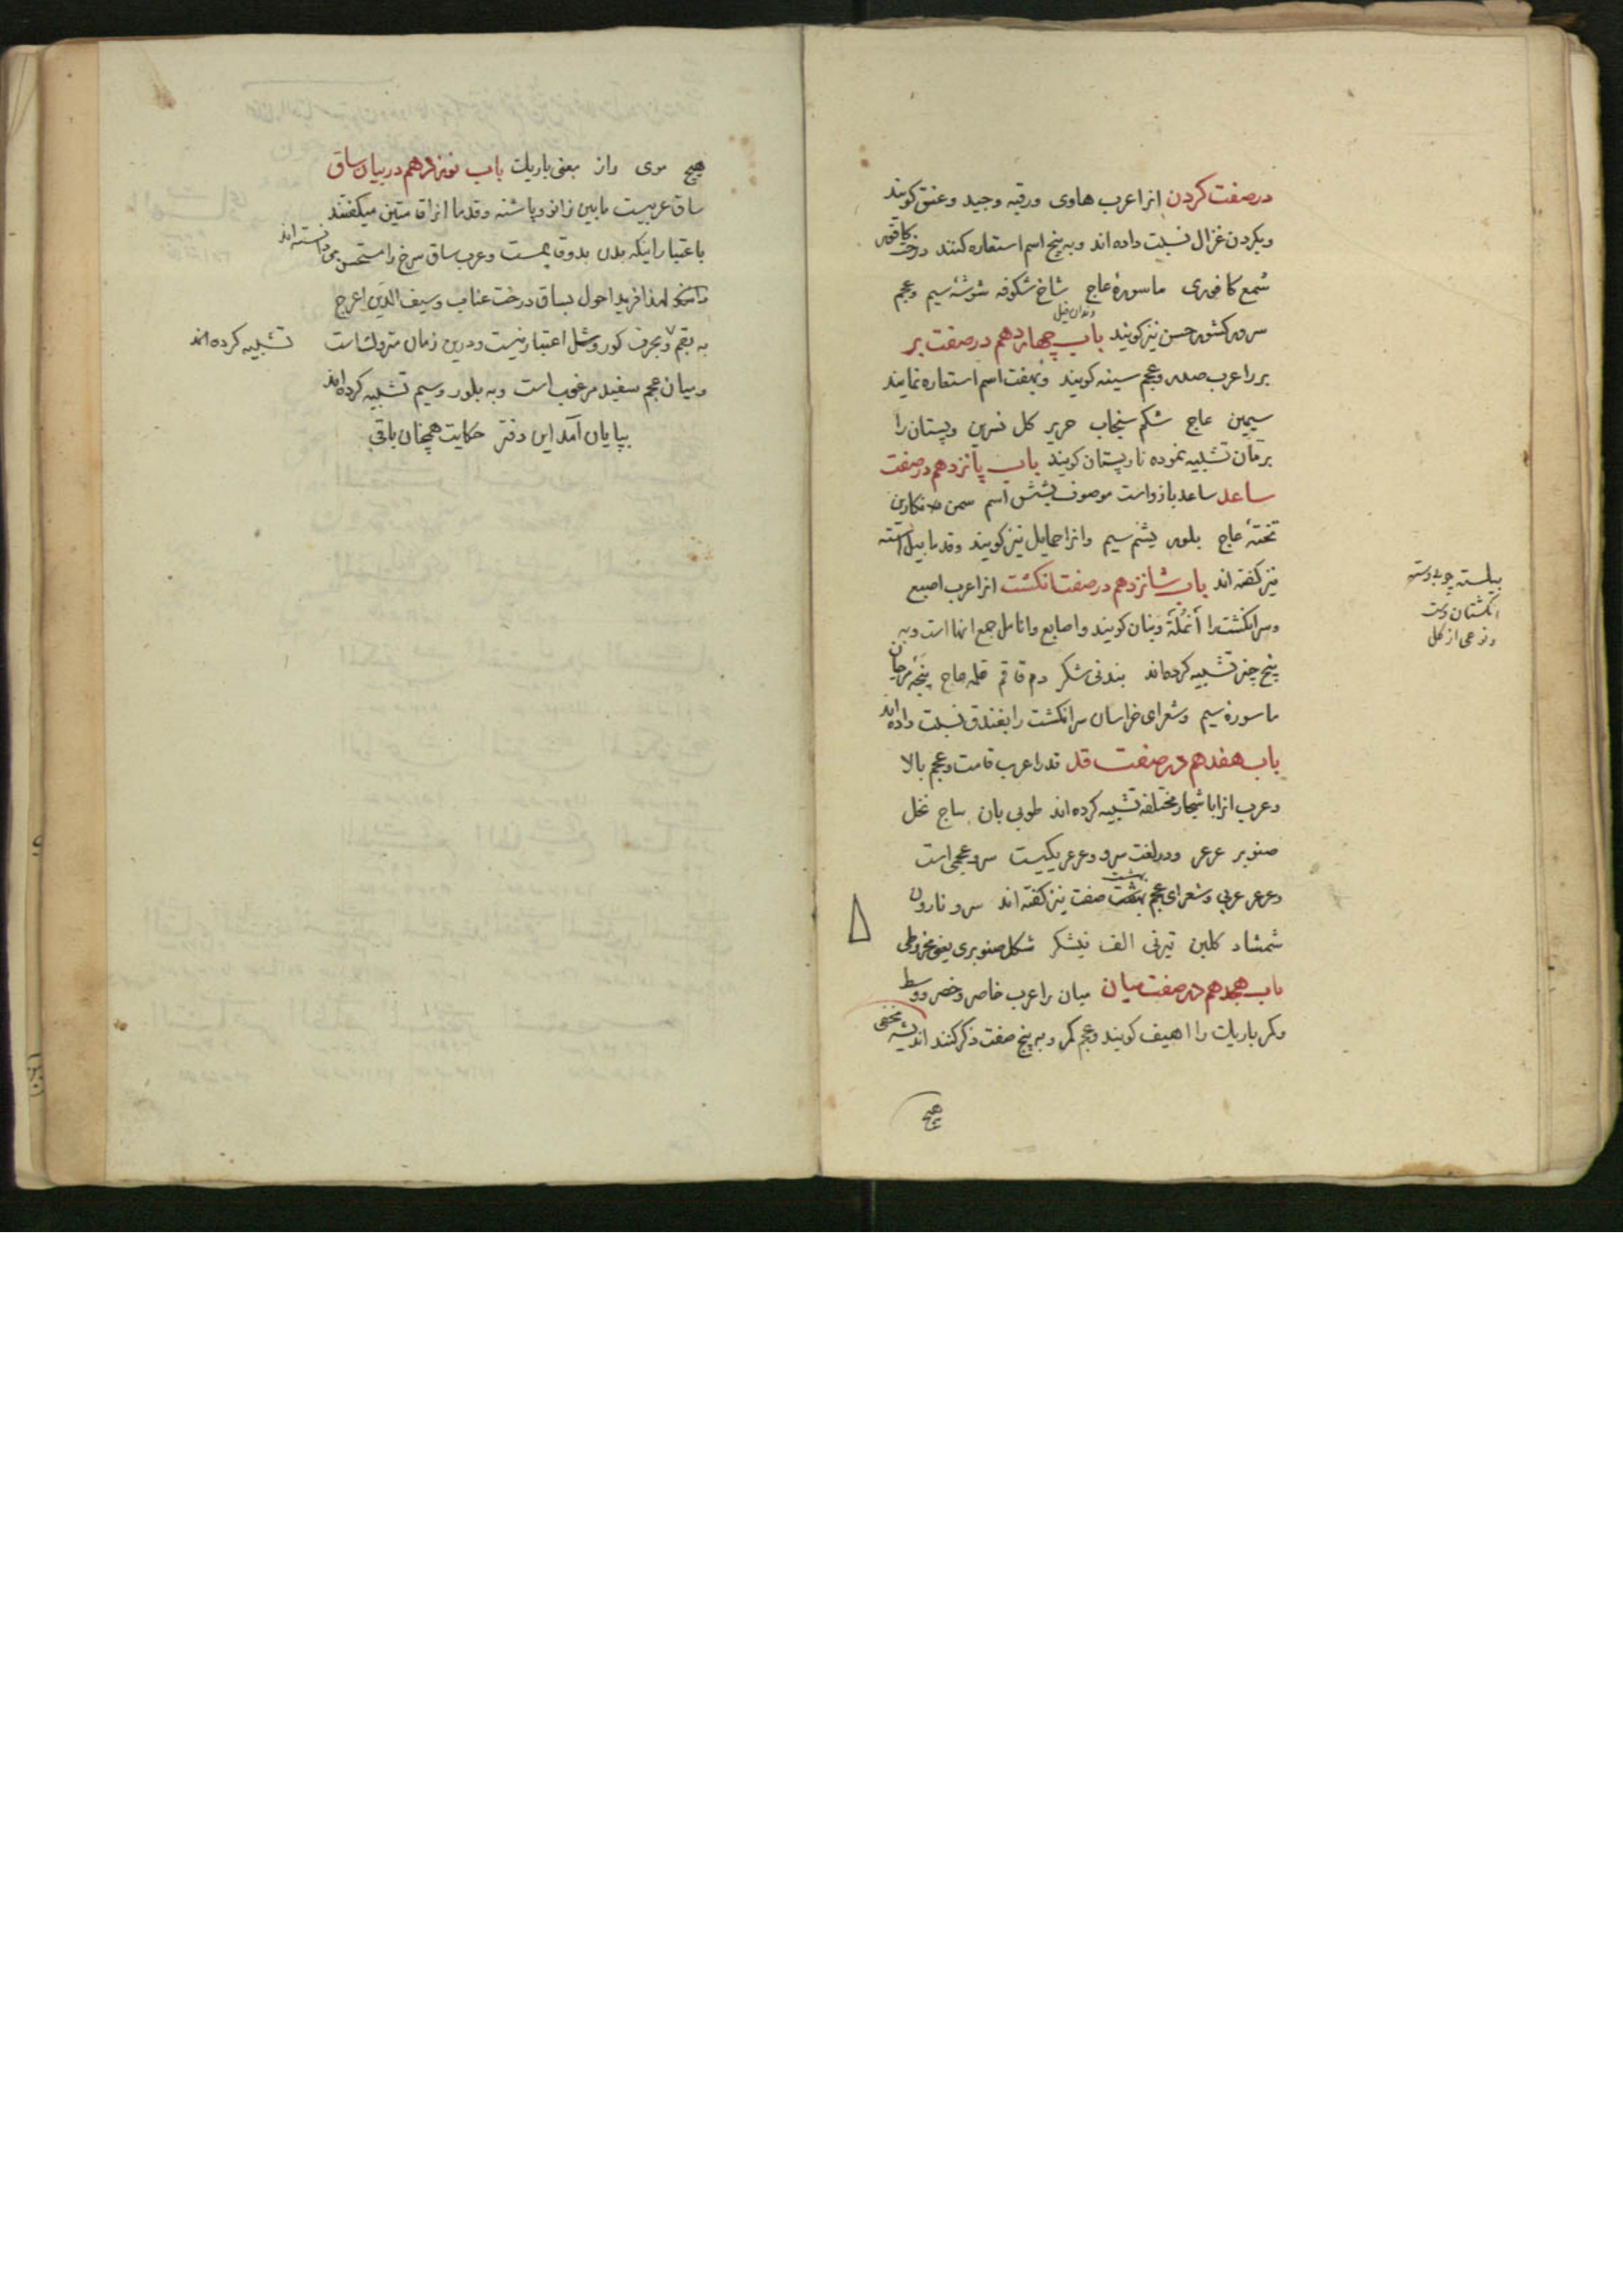 در صفت کردن انرا عرب هادی ورقبه وجید وعنق کویند
وبکردن غزال نسبت داده اند وبه پنج اسم استعاره کنند درخت کافور
شمع کافوری ماسورۀ عاج شاخ شکوفه شوشۀ سیم وعجم
دندان فیل
سرور کشور حسن نیز کویند باب چهاردهم در صفت بر
بر را عرب صدر وعجم سینه کویند وبهفت اسم استعاره نمایند
سیمین عاج شکم سنجاب حریر کل نسرین وپستان را
برمان تشبیه نموده نار پستان کویند باب پانزدهم در صفت
ساعد ساعد بازو است موصوف بشش اسم سمن نکارین
تختۀ عاج بلور یشم سیم وانرا حمایل نیز کویند وقدما بیلسته
نیز کفته اند باب شانزدهم در صفت انکشت انرا عرب اصبع
وسر انکشت را أنمُلَة وبنان کویند واصابع وانامل جمع انها است وبه
پنج چیز تشبیه کرده‌اند بند نی شکر دم قاقم قلم عاج پنجۀ مرجان
ماسورۀ سیم وشعرای خراسان سر انکشت را بفندق نسبت داده اند
باب هفدهم در صفت قد قد را عرب قامت وعجم بالا
وعرب انرا باشجار مختلفه تشبیه کرده اند طوبی بان ساج نخل
صنوبر عرعر ودر لغت سرو وعرعر یکیست سرو عجمی است
وعرعر عربی وشعرای عجم بهشت صفت نیز کفته اند سرو نارون
شمشاد کلبن تیر نی الف نیشکر شکل صنوبری یعنی مخروطی
باب هجدهم در صفت میان میان را عرب خاصر وخصر ووسط
وکمر باریک را اهیف کویند وعجم کمر وبه پنج صفت ذکر کنند اندیشه مخفی
هیچ
بیلسته چوب دسته
انکشتان دست
ونوعی از کل
هیچ موی واز معنی باریک باب نوزدهم در بیان ساق
ساق عربیست مابین زانو وپاشنه وقدما انرا قامتین میکفتند
باعتبار اینکه بدن بدو قایمست وعرب ساق سرخ را مستحسن می دانسته اند
فرید احول بساق درخت عناب وسیف الدین اعرج
به بقم وبحرف کور وشل اعتبار نیست ودرین زمان متروکست تشبیه کرده اند
ومیان عجم سفید مرغوب است وبه بلور وسیم تشبیه کرده اند
بپایان آمد این دفتر حکایت همچنان باقی